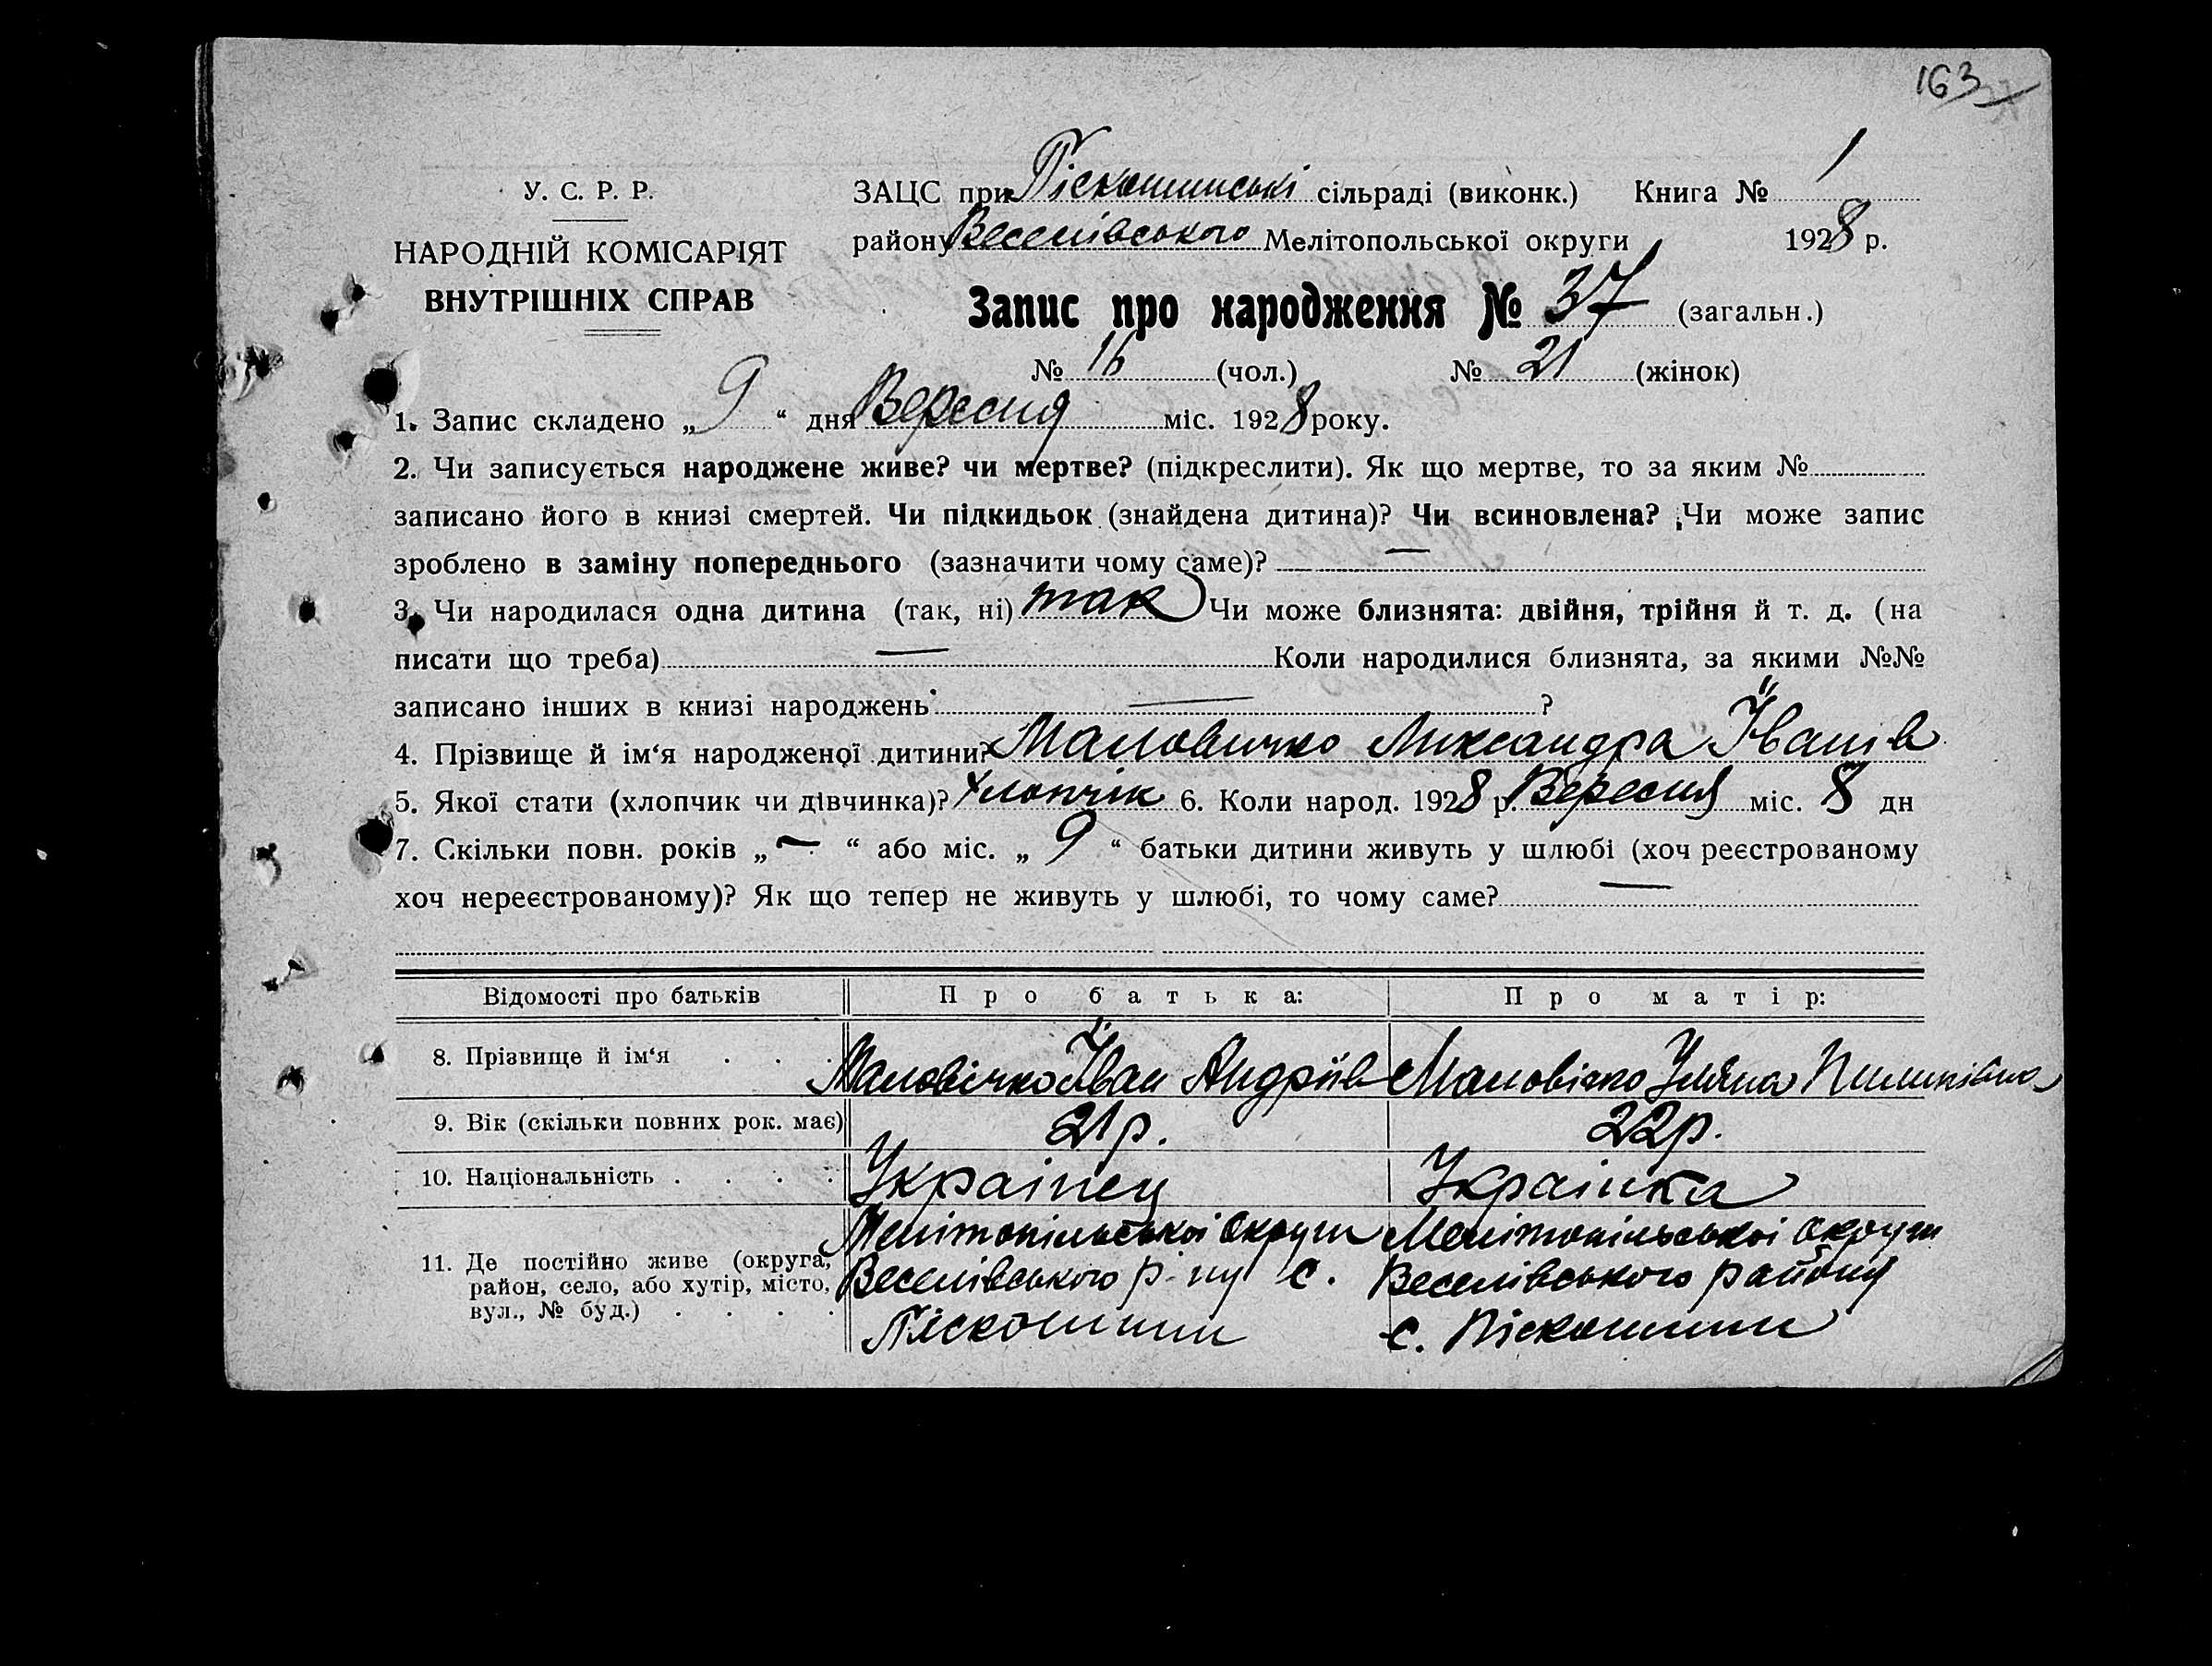 163
У. С. Р. Р.
НАРОДНІЙ КОМІСАРІЯТ
ВНУТРІШНІХ СПРАВ
ЗАЦС при Піскошинські сільраді (виконк.) Книга № 1
району Веселівського Мелітопольської округи 1928 р.
Запис про народження № 37 (загальн.)
№ 16 (чол.) № 21 (жінок)
1. Запис складено „ 9 “ дня Вересня міс. 1928 року.
2. Чи записується народжене живе? чи мертве? (підкреслити). Як що мертве, то за яким №
записано його в книзі смертей. Чи підкидьок (знайдена дитина)? Чи всиновлена? Чи може запис
зроблено в заміну попереднього (зазначити чому саме)? —
3. Чи народилася одна дитина (так, ні) так Чи може близнята: двійня, трійня й т. д. (на
писати що треба) — Коли народилися близнята, за якими №№
записано інших в книзі народжень — ?
4. Прізвище й ім‘я народженої дитини? Маловичко Ликсандра Іванів
5. Якої стати (хлопчик чи дівчинка)? Хлопчік 6. Коли народ. 1928 р. Вересня міс. 8 дн
7. Скільки повн. років „ — “ або міс. „ 9 “ батьки дитини живуть у шлюбі (хоч реєстрованому
хоч нереєстрованому)? Як що тепер не живуть у шлюбі, то чому саме? —
Відомості про батьків Про батька: Про матір:
8. Прізвище й ім‘я . . . Маловічко Іван Андріїв Маловічко Уляна Пилипівна
9. Вік (скільки повних рок. має) 21 р. 22 р.
10. Національність . . . . Українец Українка
11. Де постійно живе (округа, район, село, або хутір, місто, вул., № буд.) . . . .
Мелітопільської округи
Веселівського р-ну с.
Піскошини
Мелітопільської округи
Веселівського району
с. Піскошини